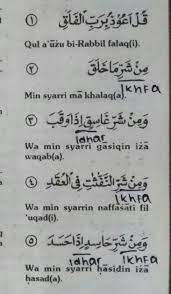 قُلْ اَعُوْذُ بِرَبِّ الْفَلَقِۙ ١
Qul a'ūżu bi-Rabbil falaq(i).
مِنْ شَرِّ مَا خَلَقَۙ ٢
ikhfa
Min syarri mā khalaq(a).
وَمِنْ شَرِّ غَاسِقٍ اِذَا وَقَبَۙ ٣
idhar
Wa min syarri gāsiqin iżā
waqab(a).
وَمِنْ شَرِّ النَّفّٰثٰتِ فِى الْعُقَدِۙ ٤
ikhfa
Wa min syarrin naffāṡāti fil
'uqad(i).
وَمِنْ شَرِّ حَاسِدٍ اِذَا حَسَدَ ٥
idhar ikhfa
Wa min syarri ḥāsidin iżā
ḥasad(a).